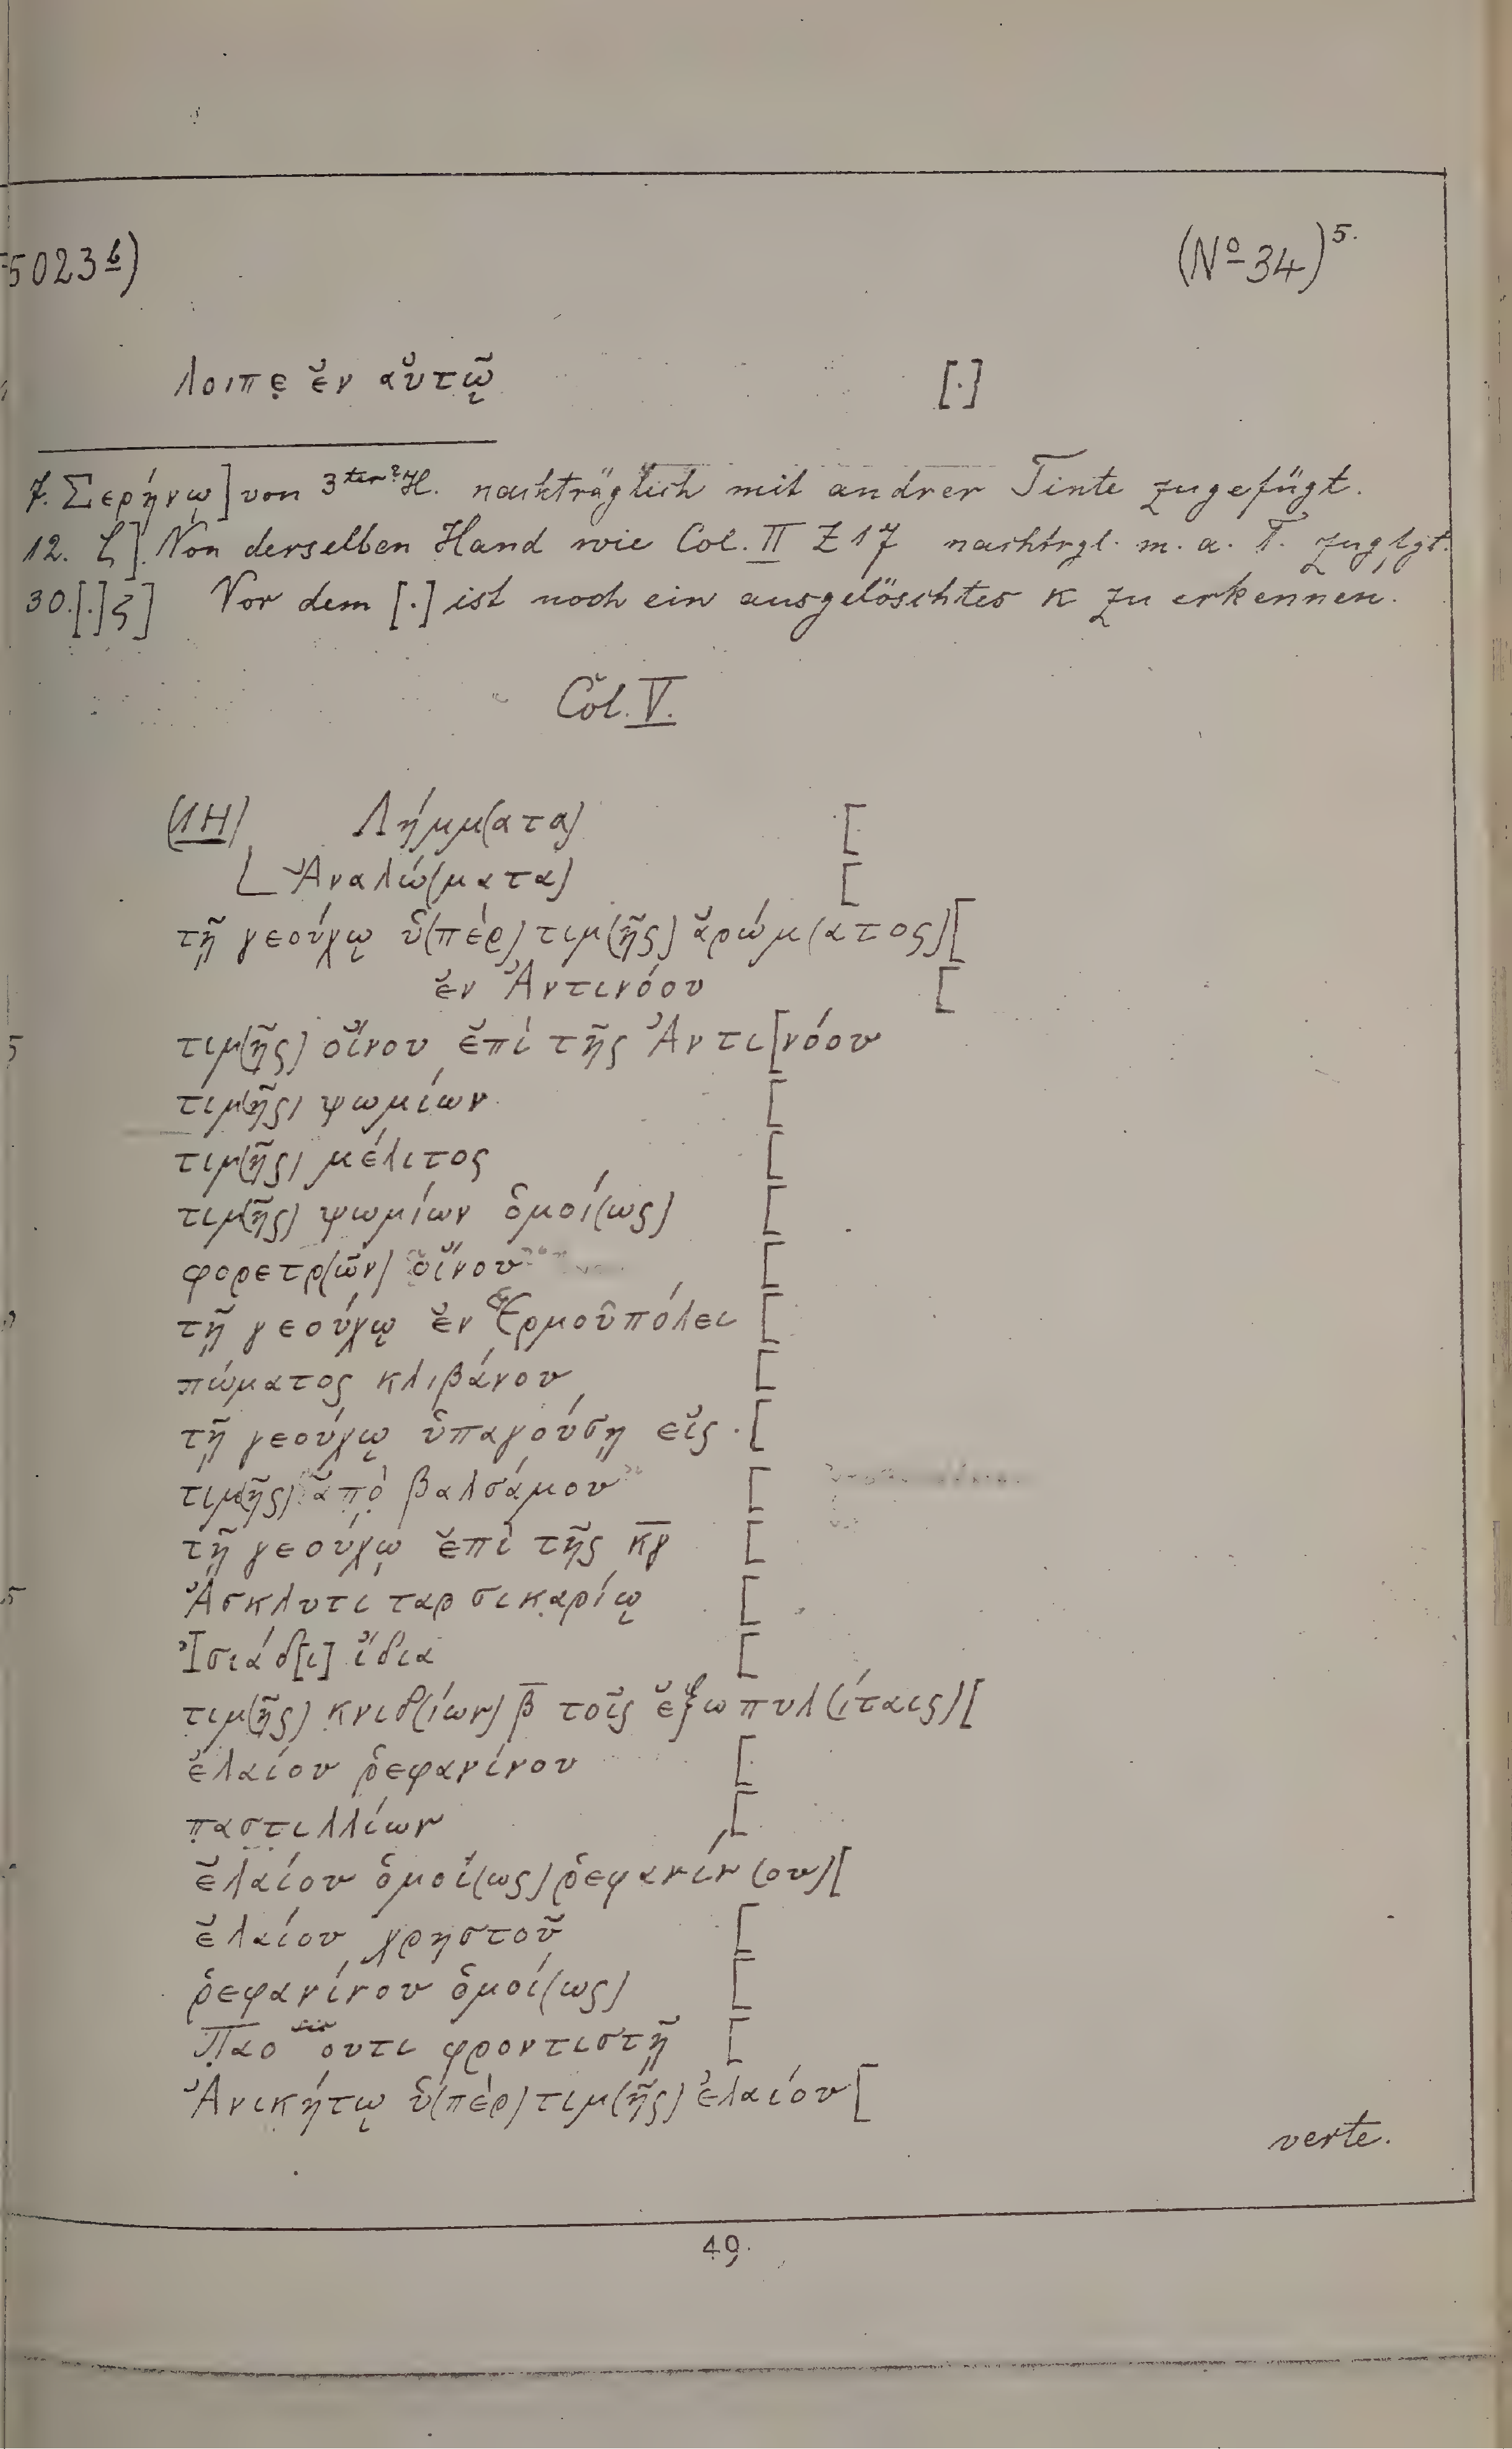 5023b)
(No 34)5.
λοιπε ἐν αὐτῷ [.]
7. Σερήνῳ] von 3ter? H. nachträglich mit andrer Tinte zugefügt.
12. ζ]. Von derselben Hand wie Col. II Z 17 nachtrgl. m. a. T. zugfgt.
30. [.]ς] Vor dem [.] ist noch ein ausgelöschtes κ zu erkennen.
Col. V.
(ΙΗ) Λήμμ(ατα) [
Ἀναλώ(ματα) [
τῇ γεούχῳ ὑ(πὲρ) τιμ(ῆς) ἀρώμ(ατος) [
ἐν Ἀντινόου [
5 τιμ(ῆς) οἴνου ἐπὶ τῆς Ἀντι[νόου
τιμ(ῆς) ψωμίων [
τιμ(ῆς) μέλιτος [
τιμ(ῆς) ψωμίων ὁμοί(ως) [
φορετρ(ῶν) οἴνου [
τῇ γεούχῳ ἐν Ἑρμουπόλει [
πώματος κλιβάνου [
τῇ γεούχῳ ὑπαγούσῃ εἰς . [
τιμ(ῆς) ἀπὸ βαλσάμου [
τῇ γεούχῳ ἐπὶ τῆς κγ [
5 Ἀσκλυτι ταρσικαρίῳ [
Ἰσιάδ[ι] ἴδια [
τιμ(ῆς) κνιδ(ίων) β τοῖς ἐξωπυλ(ίταις) [
ἐλαίου ῥεφανίνου [
παστιλλίων [
ἐλαίου ὁμοί(ως) ῥεφανίν(ου) [
ἐλαίου χρηστοῦ [
ῥεφανίνου ὁμοί(ως) [
ουτι φροντιστῇ [
Ἀνικήτῳ ὑ(πὲρ) τιμ(ῆς) ἐλαίου [
verte.
49.